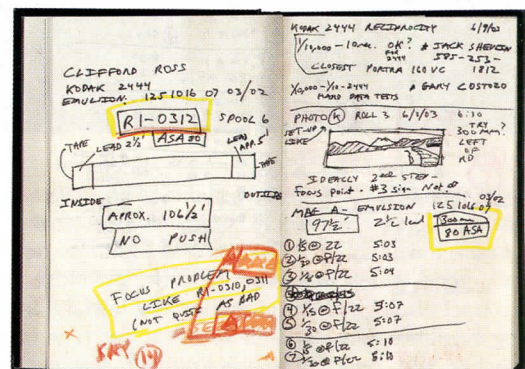 CLIFFORD ROSS
KODAK 2444
EMULSION: 1251016 07 03/02
R1-0312
SPOOL 6
ASA 80
TAPE
LEAD 2½'
LEAD
APR. 5'
TAPE
INSIDE
OUTSIDE
APROX. 106½'
NO PUSH
FOCUS PROBLEM
LIKE R1-0310, 0311
(NOT QUITE AS BAD
SKY 14
KODAK 2444 RECIPROCITY 6/9/03
1/10,000 - 10 sec. OK?
FOR 2444
* JACK SHEVLIN
585-253-
1812
CLOSEST PORTRA 160 VC
1/10,000 - 1/10 - 2444
HARD DATA TESTS
* GARY COSTOZO
PHOTO K ROLL 3 6/3/03 6:10
SET-UP
LIKE
TRY
300 mm?
LEFT
OF
RD
IDEALLY 2nd STEP -
FOCUS POINT - #3 sign Not ∞
MAG A - EMULSION 1251016 07
03/02
97½' 2½ lead
300 mm
80 ASA
① 1/15 @ 22 5:03
② 1/30 @ F/22 5:03
③ 1/30 @ F/22 5:04
④ 1/15 @ F/22 5:07
⑤ 1/30 @ F/22 5:07
⑥ 1/15 @ F/22 5:10
⑦ 1/30 @ F/22 5:10